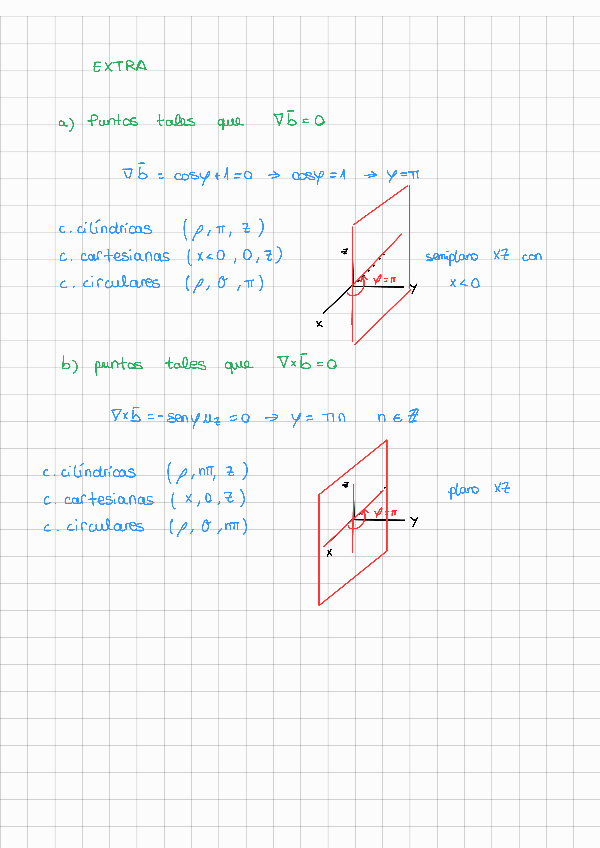 EXTRA
a) Puntos tales que ∇b̄ = 0
∇b̄ = cosφ + 1 = 0 → cosφ = 1 → φ = π
c. cilíndricas (ρ, π, z)
c. cartesianas (x<0, 0, z)
c. circulares (ρ, θ, π)
z
φ = π
y
x
semiplano XZ con
x<0
b) puntos tales que ∇×b̄ = 0
∇×b̄ = -senφ uz = 0 → φ = πn n ∈ ℤ
c. cilíndricas (ρ, nπ, z)
c. cartesianas (x, 0, z)
c. circulares (ρ, θ, nπ)
z
φ = π
y
x
plano XZ